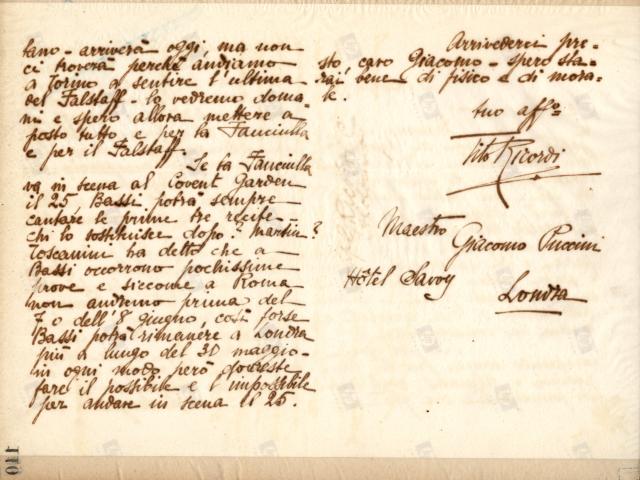 lano - arriverà oggi, ma non
ci troverà perchè andiamo
a Torino a sentire l'ultima
del Falstaff - lo vedremo doma-
ni e spero allora mettere a
posto tutto, e per la Fanciulla
e per il Falstaff.
Se la Fanciulla
va in scena al Covent Garden
il 25 Bassi potrà sempre
cantare le prime tre recite -
chi lo sostituisce dopo? Martin?
Toscanini ha detto che a
Bassi occorrono pochissime
prove e siccome a Roma
non andremo prima del
7 o dell'8 giugno, così forse
Bassi potrà rimanere a Londra
più a lungo del 31 maggio -
in ogni modo però dovreste
fare il possibile e l'impossibile
per andare in scena il 25.
Arrivederci pre-
sto, caro Giacomo - spero sta-
rai bene di fisico e di mora-
le.
tuo affo:
Tito Ricordi
Maestro
Giacomo Puccini
Hôtel Savoy
Londra
110